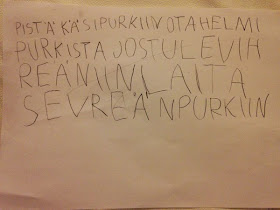 PISTÄ KÄSI PURKIIN OTA HELMI
PURKISTA JOS TULEE VIH
REÄ NIIN LAITA
SE VREÄN PURKIIN